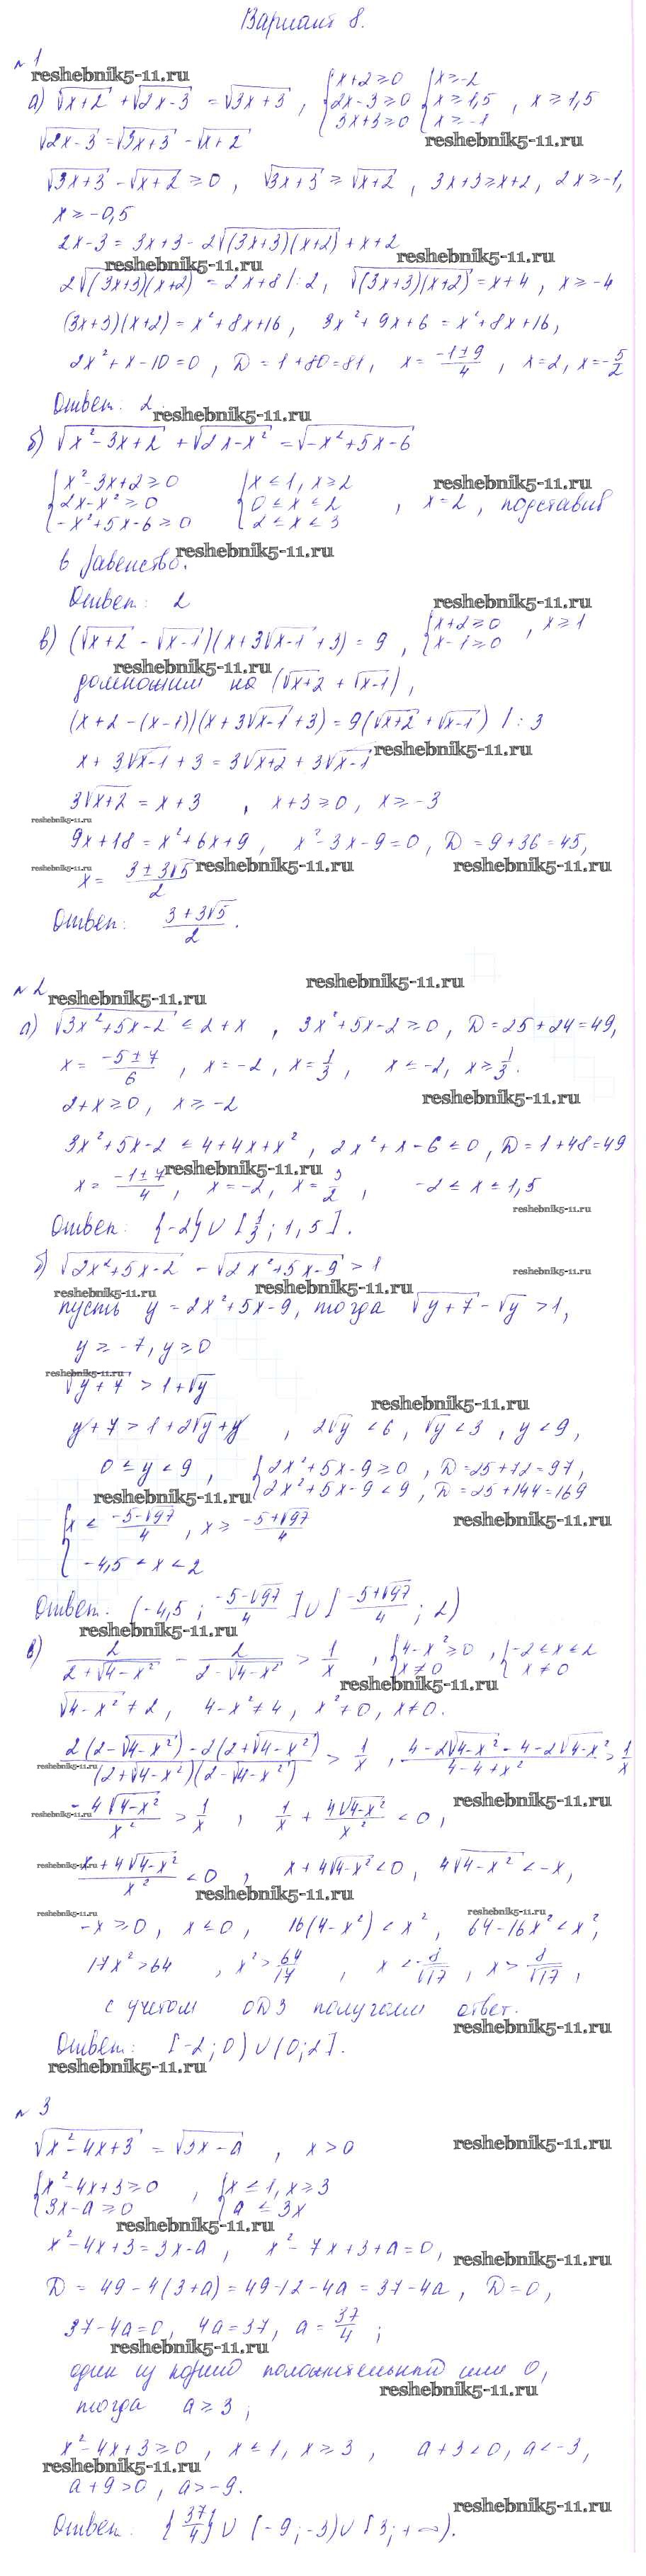 Вариант 8.
№1
reshebnik5-11.ru
а) √(x+2) + √(2x-3) = √(3x+3) , { x+2≥0 2x-3≥0 3x+3≥0 { x≥-2 x≥1,5 x≥-1 , x≥1,5
reshebnik5-11.ru
√(2x-3) = √(3x+3) - √(x+2)
√(3x+3) - √(x+2) ≥ 0 , √(3x+3) ≥ √(x+2) , 3x+3≥x+2, 2x≥-1,
x≥-0,5
2x-3 = 3x+3-2√((3x+3)(x+2)) + x+2
reshebnik5-11.ru reshebnik5-11.ru
2√((3x+3)(x+2)) = 2x+8 /:2, √((3x+3)(x+2)) = x+4 , x≥-4
(3x+3)(x+2) = x²+8x+16, 3x²+9x+6 = x²+8x+16,
2x²+x-10=0 , D=1+80=81, x= (-1±9)/4 , x=2, x=-5/2
Ответ: 2.
reshebnik5-11.ru
б) √(x²-3x+2) + √(2x-x²) = √(-x²+5x-6)
{ x²-3x+2≥0 2x-x²≥0 -x²+5x-6≥0 { x≤1, x≥2 0≤x≤2 2≤x≤3 , x=2 , подставив
reshebnik5-11.ru
в равенство.
reshebnik5-11.ru
Ответ: 2
reshebnik5-11.ru
в) (√(x+2) - √(x-1))(x+3√(x-1)+3) = 9 , { x+2≥0 x-1≥0 , x≥1
reshebnik5-11.ru
домножим на (√(x+2) + √(x-1)) ,
(x+2-(x-1))(x+3√(x-1)+3) = 9(√(x+2)+√(x-1)) /:3
x+3√(x-1)+3 = 3√(x+2)+3√(x-1)
reshebnik5-11.ru
3√(x+2) = x+3 , x+3≥0, x≥-3
reshebnik5-11.ru
9x+18 = x²+6x+9 , x²-3x-9=0, D=9+36=45,
reshebnik5-11.ru reshebnik5-11.ru reshebnik5-11.ru
x= (3±3√5)/2
Ответ: (3+3√5)/2 .
reshebnik5-11.ru
№2
reshebnik5-11.ru
а) √(3x²+5x-2) ≤ 2+x , 3x²+5x-2≥0, D=25+24=49,
x= (-5±7)/6 , x=-2, x=1/3 , x≤-2, x≥1/3.
reshebnik5-11.ru
2+x≥0, x≥-2
3x²+5x-2 ≤ 4+4x+x² , 2x²+x-6≤0, D=1+48=49
reshebnik5-11.ru
x= (-1±7)/4 , x=-2, x=3/2 , -2≤x≤1,5
reshebnik5-11.ru
Ответ: {-2}∪[1/3; 1,5].
б) √(2x²+5x-2) - √(2x²+5x-9) > 1
reshebnik5-11.ru
reshebnik5-11.ru reshebnik5-11.ru
пусть y=2x²+5x-9, тогда √(y+7)-√y >1,
y≥-7, y≥0
reshebnik5-11.ru
√(y+7) > 1+√y
reshebnik5-11.ru
y+7>1+2√y+y , 2√y<6, √y<3, y<9,
0≤y<9 , { 2x²+5x-9≥0 , D=25+72=97, 2x²+5x-9<9, D=25+144=169
reshebnik5-11.ru
{ x≤ (-5-√97)/4 , x≥ (-5+√97)/4
reshebnik5-11.ru
-4,5<x<2
Ответ. (-4,5; (-5-√97)/4 ]∪[ (-5+√97)/4 ; 2)
reshebnik5-11.ru
в) 2/(2+√(4-x²)) - 2/(2-√(4-x²)) > 1/x , { 4-x²≥0 x≠0 , { -2≤x≤2 x≠0
reshebnik5-11.ru
√(4-x²) ≠ 2, 4-x²≠4, x²≠0, x≠0.
(2(2-√(4-x²))-2(2+√(4-x²)))/((2+√(4-x²))(2-√(4-x²))) > 1/x , (4-2√(4-x²)-4-2√(4-x²))/(4-4+x²) > 1/x
reshebnik5-11.ru
reshebnik5-11.ru
-4√(4-x²)/x² > 1/x , 1/x + 4√(4-x²)/x² < 0,
reshebnik5-11.ru
(x+4√(4-x²))/x² <0 , x+4√(4-x²)<0, 4√(4-x²) < -x,
reshebnik5-11.ru
reshebnik5-11.ru
reshebnik5-11.ru reshebnik5-11.ru
-x≥0, x≤0, 16(4-x²)<x², 64-16x²<x²,
17x²>64 , x²>64/17 , x<-8/√17 , x>8/√17 ,
с учетом ОДЗ получаем ответ.
reshebnik5-11.ru
Ответ: [-2;0)∪(0;2].
reshebnik5-11.ru
№3
√(x²-4x+3) = √(3x-a) , x>0
reshebnik5-11.ru
{ x²-4x+3≥0 3x-a≥0 , { x≤1, x≥3 a≤3x
reshebnik5-11.ru
x²-4x+3=3x-a , x²-7x+3+a=0,
reshebnik5-11.ru
D = 49-4(3+a) = 49-12-4a = 37-4a, D=0,
37-4a=0, 4a=37, a= 37/4 ;
reshebnik5-11.ru
один из корней положительный или 0,
reshebnik5-11.ru
тогда a≥3;
x²-4x+3≥0 , x≤1, x≥3 , a+3<0, a<-3,
reshebnik5-11.ru
a+9>0, a>-9.
reshebnik5-11.ru
Ответ. {37/4}∪(-9;-3)∪[3;+∞).